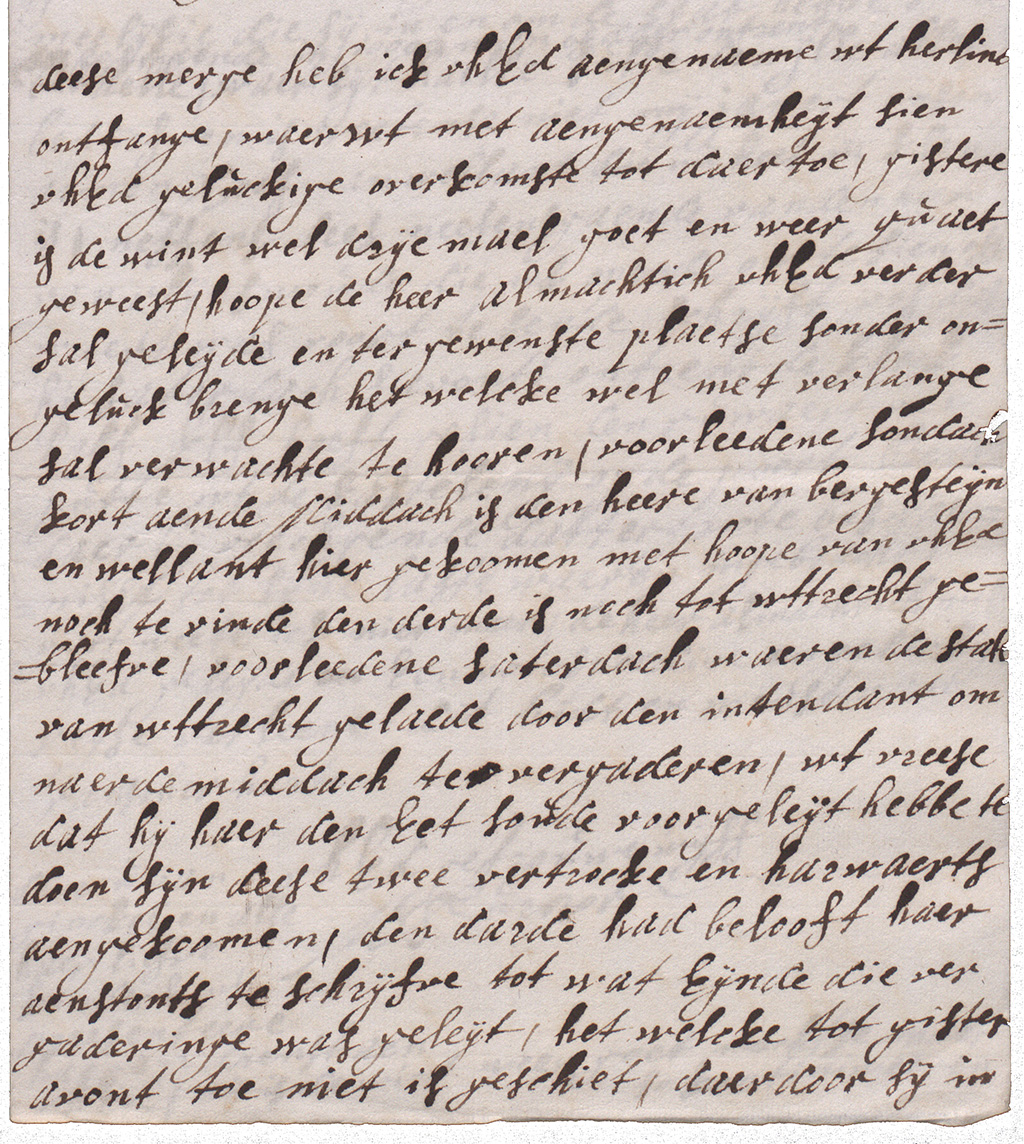 deese merge heb ick uhEd aengenaeme wt herlinc
ontfange, waer wt met aengenaemheÿt sien
uhEd geluckige overkomste tot daer toe, gistere
is de wint wel drÿe mael goet en weer quaet
geweest, hoope de heer almachtich uhEd verder
sal geleÿde en ter gewenste plaetse sonder on=
geluck brenge het welcke wel met verlange
sal verwachte te hooren, voorleedene sondach
kort aende Middach is den heere van bergesteÿn
en wellant hier gekoomen met hoope van uhEd
noch te vinde den derde is noch tot wttrecht ge=
=bleefve, voorleedene saterdach waeren de stat
van wttrecht gelaede door den intendant om
naerde middach te vergaderen, wt vreese
dat hÿ haer den Eet soude voorgeleÿt hebbe te
doen sÿn deese twee vertrocke en harwaerts
aengekoomen, den darde had belooft haer
aenstonts te schrÿfve tot wat Eÿnde die ver
gaderinge was geleÿt, het welcke tot gister
avont toe niet is geschiet, daer door sÿ in